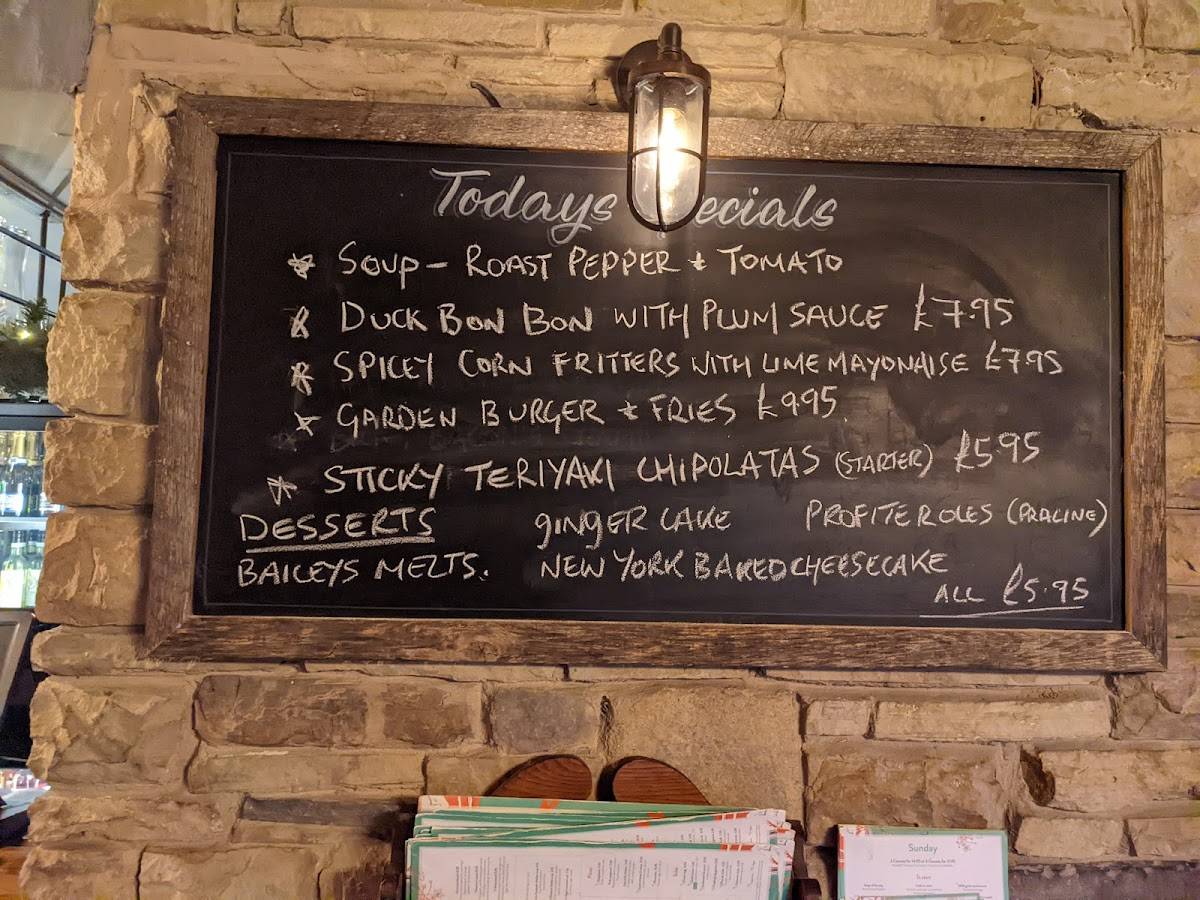 Todays Specials
* SOUP - ROAST PEPPER + TOMATO
* DUCK BON BON WITH PLUM SAUCE £7.95
* SPICEY CORN FRITTERS WITH LIME MAYONAISE £7.95
* GARDEN BURGER + FRIES £9.95
* STICKY TERIYAKI CHIPOLATAS (STARTER) £5.95
DESSERTS GINGER CAKE PROFITEROLES (PRALINE)
BAILEYS MELTS. NEW YORK BAKED CHEESECAKE
ALL £5.95
Sunday